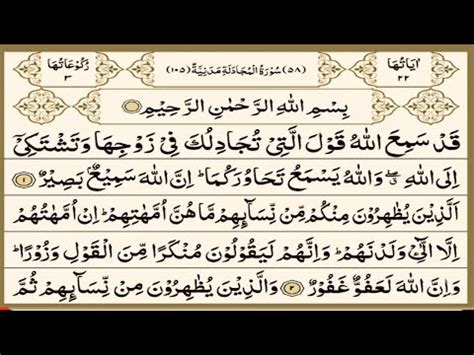 اٰیَاتُهَا ٢٢ (٥٨) سُوْرَةُ الْمُجَادَلَةِ مَدَنِيَّةٌ (١٠٥) رُكُوْعَاتُهَا ٣
بِسْمِ اللّٰهِ الرَّحْمٰنِ الرَّحِيْمِ
قَدْ سَمِعَ اللّٰهُ قَوْلَ الَّتِیْ تُجَادِلُكَ فِیْ زَوْجِهَا وَتَشْتَكِیْۤ
اِلَی اللّٰهِ ۖ وَاللّٰهُ یَسْمَعُ تَحَاوُرَكُمَا ؕ اِنَّ اللّٰهَ سَمِیْعٌۢ بَصِیْرٌ ١
اَلَّذِیْنَ یُظٰهِرُوْنَ مِنْكُمْ مِّنْ نِّسَآىِٕهِمْ مَّا هُنَّ اُمَّهٰتِهِمْ ؕ اِنْ اُمَّهٰتُهُمْ
اِلَّا الّٰٓـِٔیْ وَلَدْنَهُمْ ؕ وَاِنَّهُمْ لَیَقُوْلُوْنَ مُنْكَرًا مِّنَ الْقَوْلِ وَزُوْرًا ؕ
وَاِنَّ اللّٰهَ لَعَفُوٌّ غَفُوْرٌ ٢ وَالَّذِیْنَ یُظٰهِرُوْنَ مِنْ نِّسَآىِٕهِمْ ثُمَّ